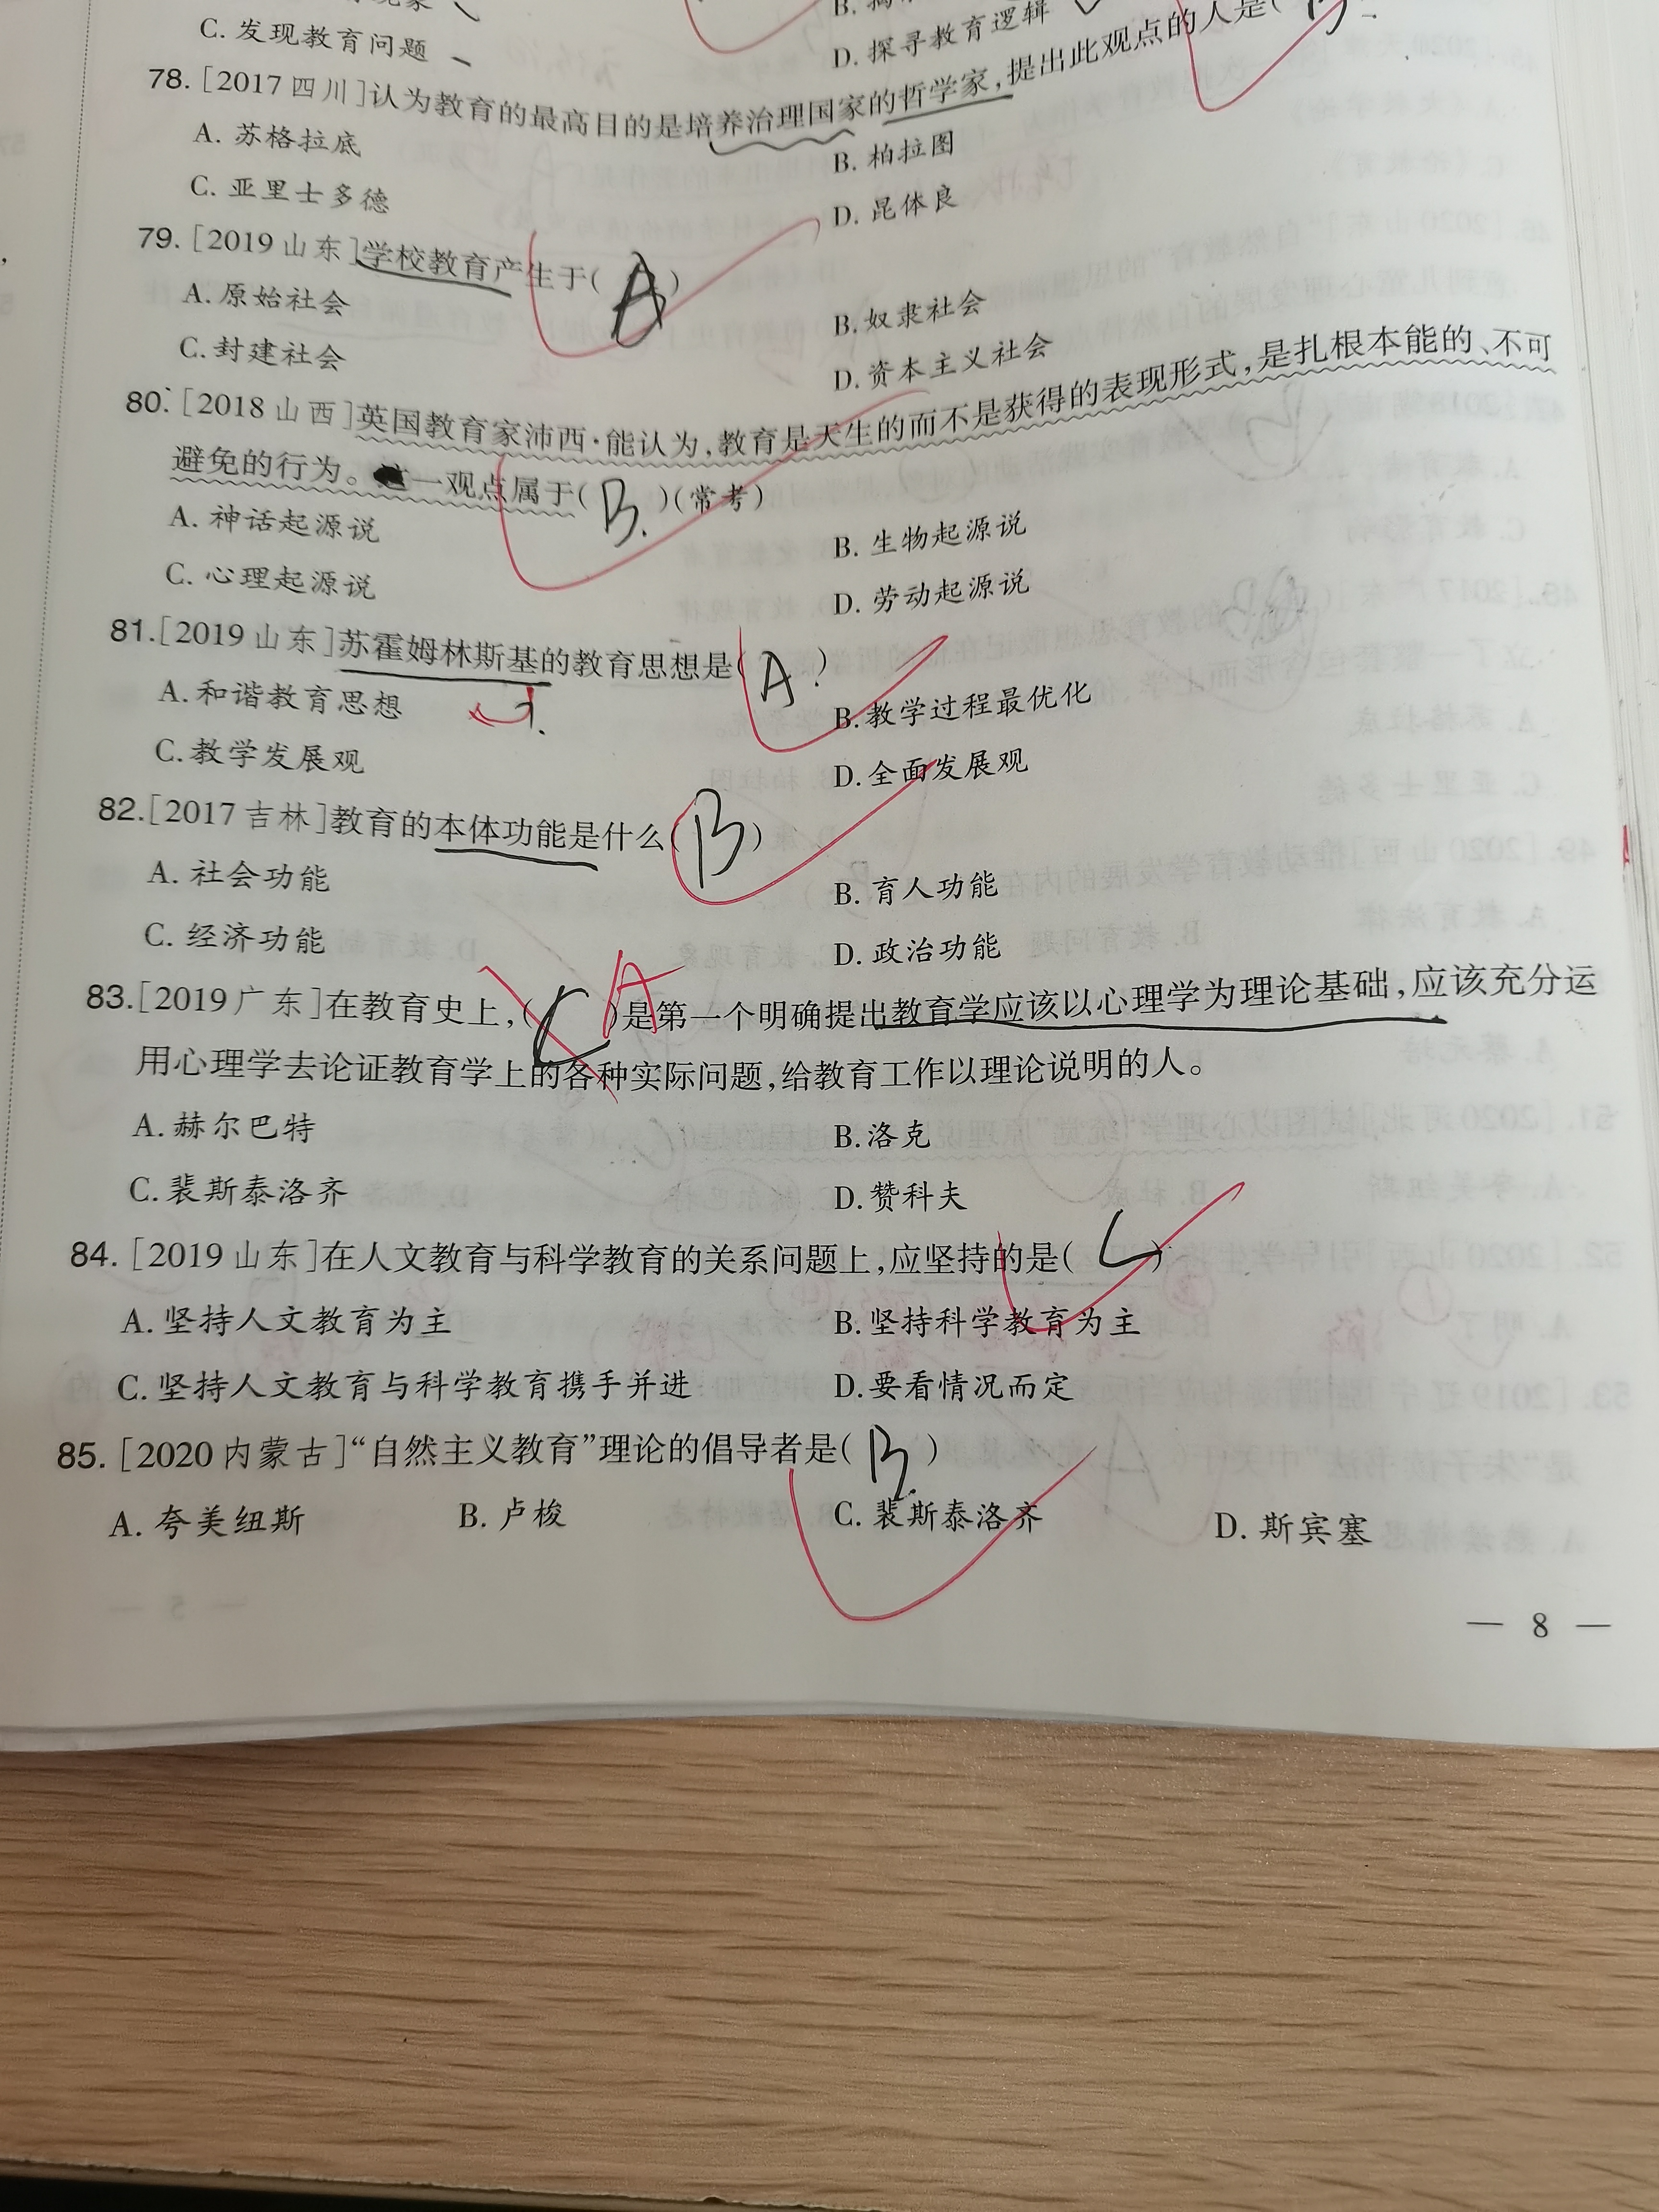 C. 发现教育问题
D. 探寻教育逻辑
78. [2017 四川]认为教育的最高目的是培养治理国家的哲学家,提出此观点的人是( B
A. 苏格拉底
B. 柏拉图
C. 亚里士多德
D. 昆体良
79. [2019 山东]学校教育产生于( A )
A. 原始社会
B. 奴隶社会
C. 封建社会
D. 资本主义社会
80. [2018 山西]英国教育家沛西·能认为,教育是天生的而不是获得的表现形式,是扎根本能的、不可
避免的行为。这一观点属于( B. )(常考)
A. 神话起源说
B. 生物起源说
C. 心理起源说
D. 劳动起源说
81. [2019 山东]苏霍姆林斯基的教育思想是( A )
A. 和谐教育思想
B. 教学过程最优化
C. 教学发展观
D. 全面发展观
82. [2017 吉林]教育的本体功能是什么( B )
A. 社会功能
B. 育人功能
C. 经济功能
D. 政治功能
83. [2019 广东]在教育史上,( C )A是第一个明确提出教育学应该以心理学为理论基础,应该充分运
用心理学去论证教育学上的各种实际问题,给教育工作以理论说明的人。
A. 赫尔巴特
B. 洛克
C. 裴斯泰洛齐
D. 赞科夫
84. [2019 山东]在人文教育与科学教育的关系问题上,应坚持的是( C )
A. 坚持人文教育为主
B. 坚持科学教育为主
C. 坚持人文教育与科学教育携手并进
D. 要看情况而定
85. [2020 内蒙古]“自然主义教育”理论的倡导者是( B. )
A. 夸美纽斯 B. 卢梭 C. 裴斯泰洛齐 D. 斯宾塞
— 8 —